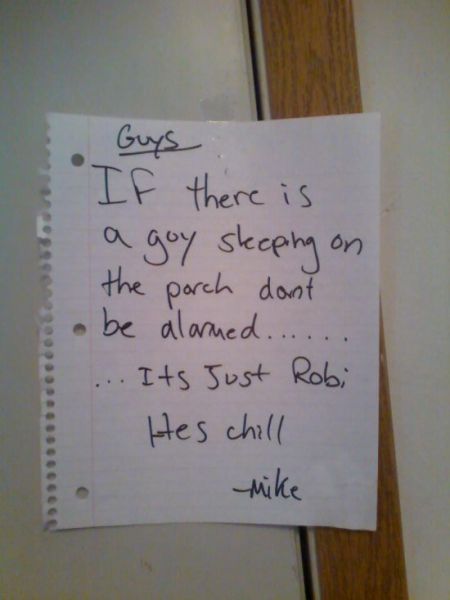 Guys
If there is
a guy sleeping on
the porch dont
be alarmed......
...Its Just Robi
Hes chill
-Mike